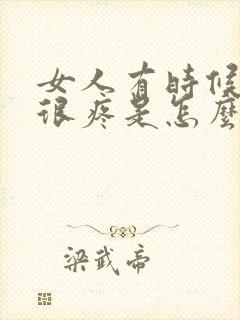 女人有時候
很疼是怎麼
梁武帝